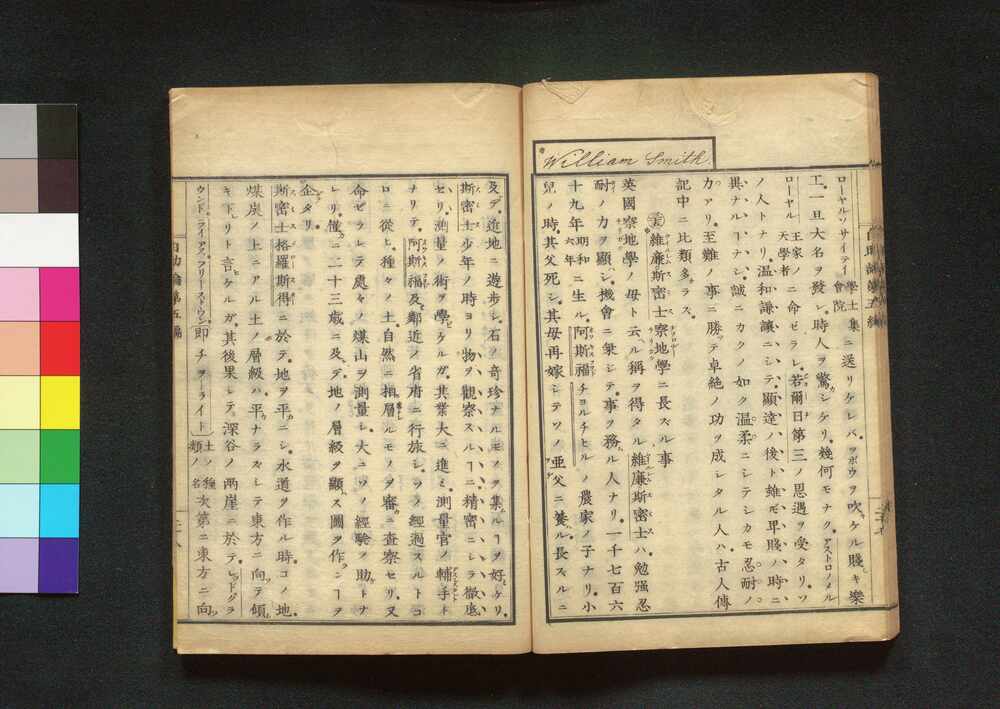 William Smith.
ローヤルソサイテイ 學士集會院 ニ送リケレバ。ツボウヲ吹ケル賤キ樂
工。一旦大名ヲ發シ。時人ヲ驚カシケリ。幾何モナク。アストロノメル
ローヤル 王家ノ天學者 ニ命ゼラレ。若爾日第三ノ恩遇ヲ受タリ。ソ
ノ人トナリ。温和謙讓ニシテ。顯達ノ後ト雖モ。卑賤ノ時ニ
異ナルヿナシ。誠ニカクノ如ク温柔ニシテシカモ忍耐ノ
力アリ。至難ノ事ニ勝テ卓絶ノ功ヲ成シタル人ハ。古人傳
記中ニ比類多カラズ。
維廉斯密士察地學ニ長ズル事
英國察地學ノ母ト云ヘル稱ヲ得タル維廉斯密士ハ。勉强忍
耐ノ力ヲ顯ハシ。機會ニ乘ジテ。事ヲ務ル人ナリ。一千七百六
十九年 明和六年 ニ生ル。阿斯福チヨルチヒルノ農家ノ子ナリ。小
兒ノ時。其父死シ。其母再嫁シテソノ亜父ニ養ハル。長ズルニ
及デ。近地ニ遊歩シ。石ノ奇珍ナルモノヲ集ルヿヲ好ミケリ。
斯密士少年ノ時ヨリ物ヲ觀察スルヿニ精密ニシテ徹底
セリ。測量ノ術ヲ學ビケルガ。其業大ニ進ミ。測量官ノ輔手ト
ナリテ。阿斯福及ビ鄰近ノ省府ニ行旅シ。ソノ經過スルトコ
ロニ從ヒ。種々ノ土。自然ニ相層ナルモノヲ審カニ査察セリ。又
命ゼラレテ處々ノ煤山ヲ測量シ。大ニソノ經驗ノ助トナ
レリ。僅ニ二十三歳ニ及デ。地ノ層級ヲ顯ハス圖ヲ作ランヿヲ
企タリ
斯密士格羅斯得ニ於テ。地ヲ平カニシ。水道ヲ作ル時。コノ地。
煤炭ノ上ニアル土ノ層級ハ。平カナラズシテ東方ニ向テ傾
キ下レリト言ヒケルガ。其後果シテ。深谷ノ兩崖ニ於テ。レッドグラ
ウンド。ライアス。フリーストウン。即チヲーライト 土ノ種類ノ名 次第ニ東方ニ向